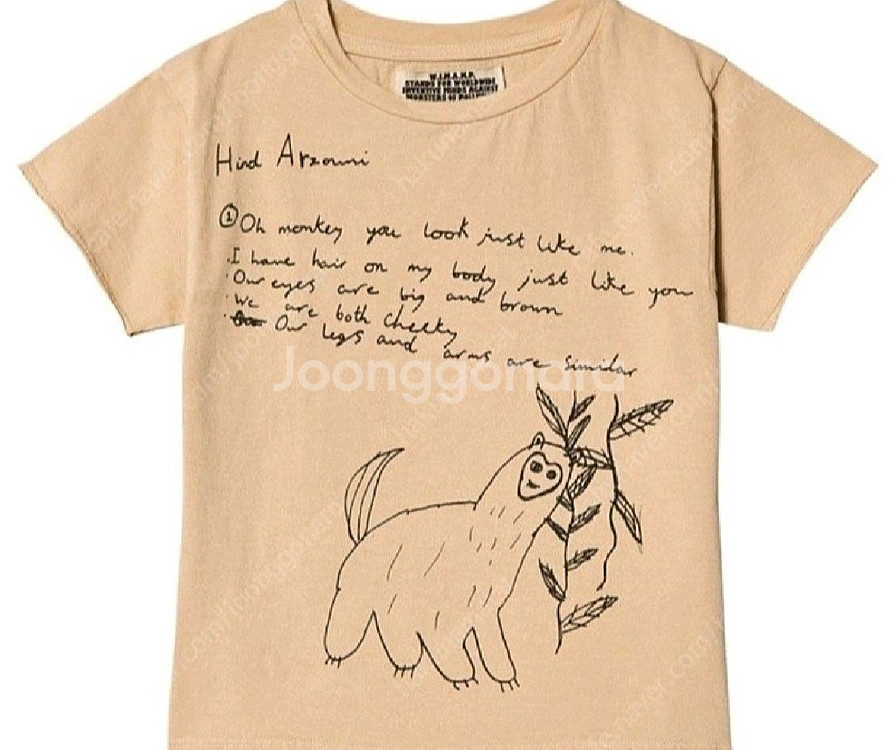 W.I.M.A.M.P.
STANDS FOR WORLDWIDE
INVENTIVE MINDS AGAINST
MONSTERS OF
Hind Arzouni
① Oh monkey you look just like me.
· I have hair on my body just like you
· Our eyes are big and brown
· We are both cheeky
· Our legs and arms are similar
Joonggonara